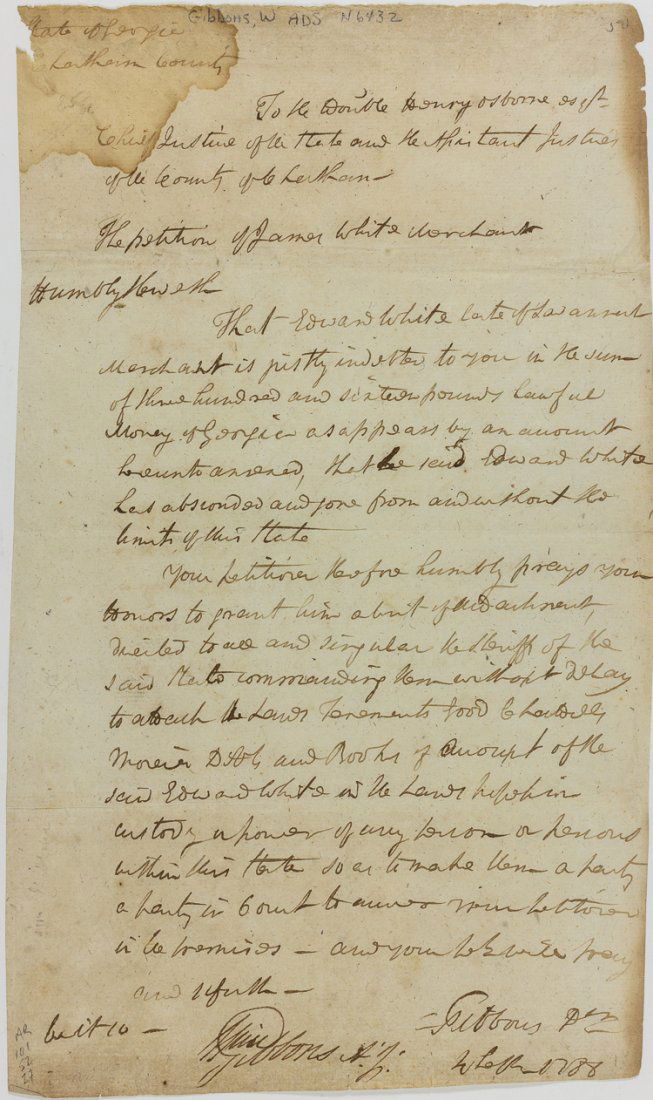 Gibbons, W ADS N6432
State of Georgia
Chatham County
To the Honble Henry Osborne esqr
Chief Justice of the State and the Assistant Justices
of the County of Chatham—
The petition of James White Merchant
Humbly Sheweth
That Edward White late of Savannah
Merchant is justly indetted to you in the sum
of three hundred and sixteen pounds lawful
Money of Georgia as appears by an account
hereunto annexed, that he said Edward White
has absconded and gone from and without the
limits of this State
Your petitioner therefore humbly prays your
Honors to grant him a writ of attachment,
directed to all and singular the Sheriffs of the
said State commanding them without delay
to attach the Lands Tenements Good Chattells
Monies Debts and Books of Account of the
said Edward White in the hands possession
custody or power of any person or persons
within this State so as to make them a party
a party in Court to answer your petitioner
in the premises — and your petr will pray
and
be it so —
Gibbons A. J.
Gibbons
1788
AR